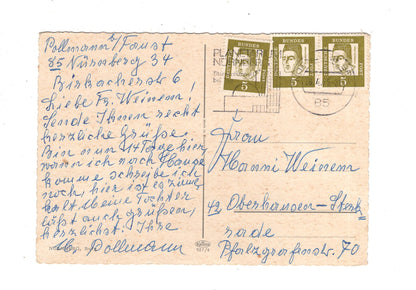 Pollmann b/Faust
85 Nürnberg 34
Birkachstr 6,
Liebe Fr. Weinem!
Sende Ihnen recht
herzliche Grüße,
Bin nun 14 Tage hier,
wenn ich nach Hause
komme schreibe ich
noch, hier ist es ziemlich
kalt Meine Tochter
läßt auch grüßen,
herzlichst. Ihre
M. Pollmann
DEUTSCHE BUNDESPOST
5
5
5
85
Frau
Hanni Weinem
42 Oberhausen-Sterk
rade
Pfalzgrafenstr. 70